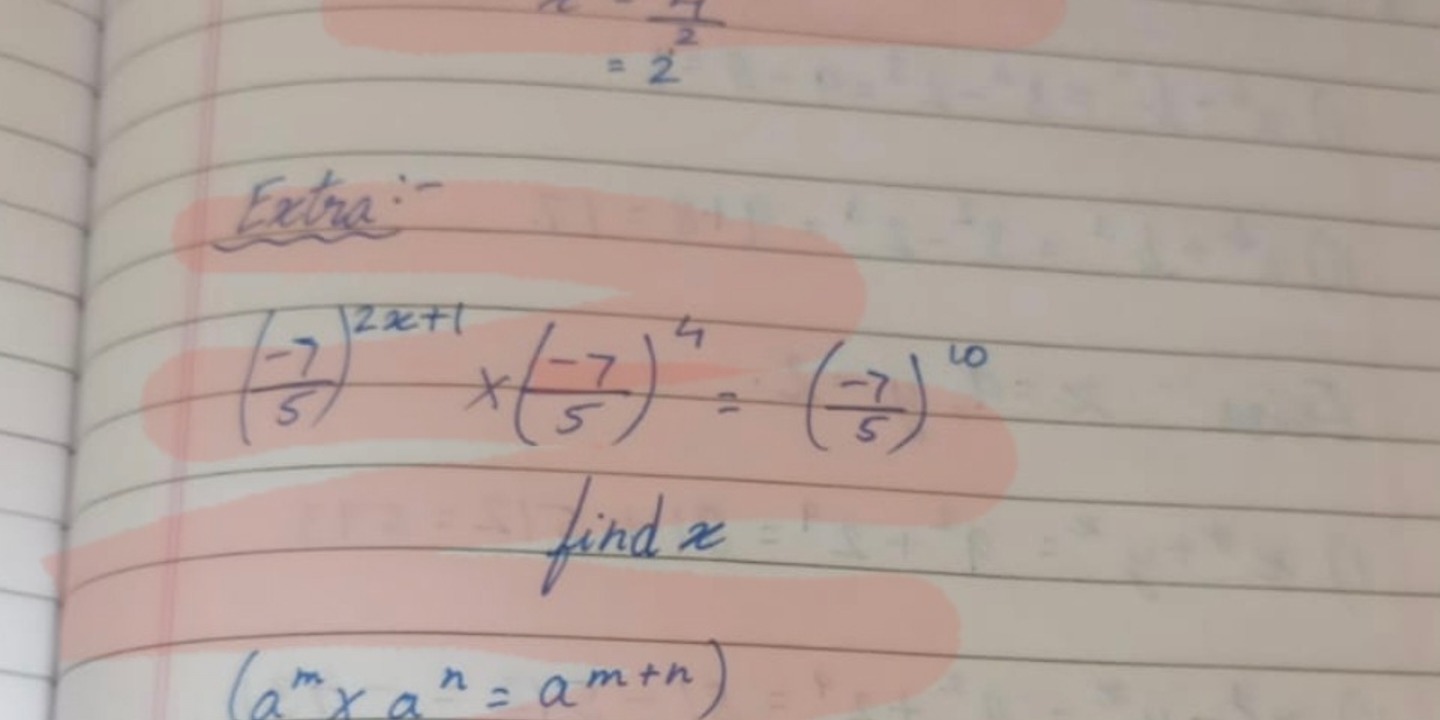 = 2
Extra:-
(-7/5)^2x+1 × (-7/5)^4 = (-7/5)^10
find x
(a^m × a^n = a^m+n)